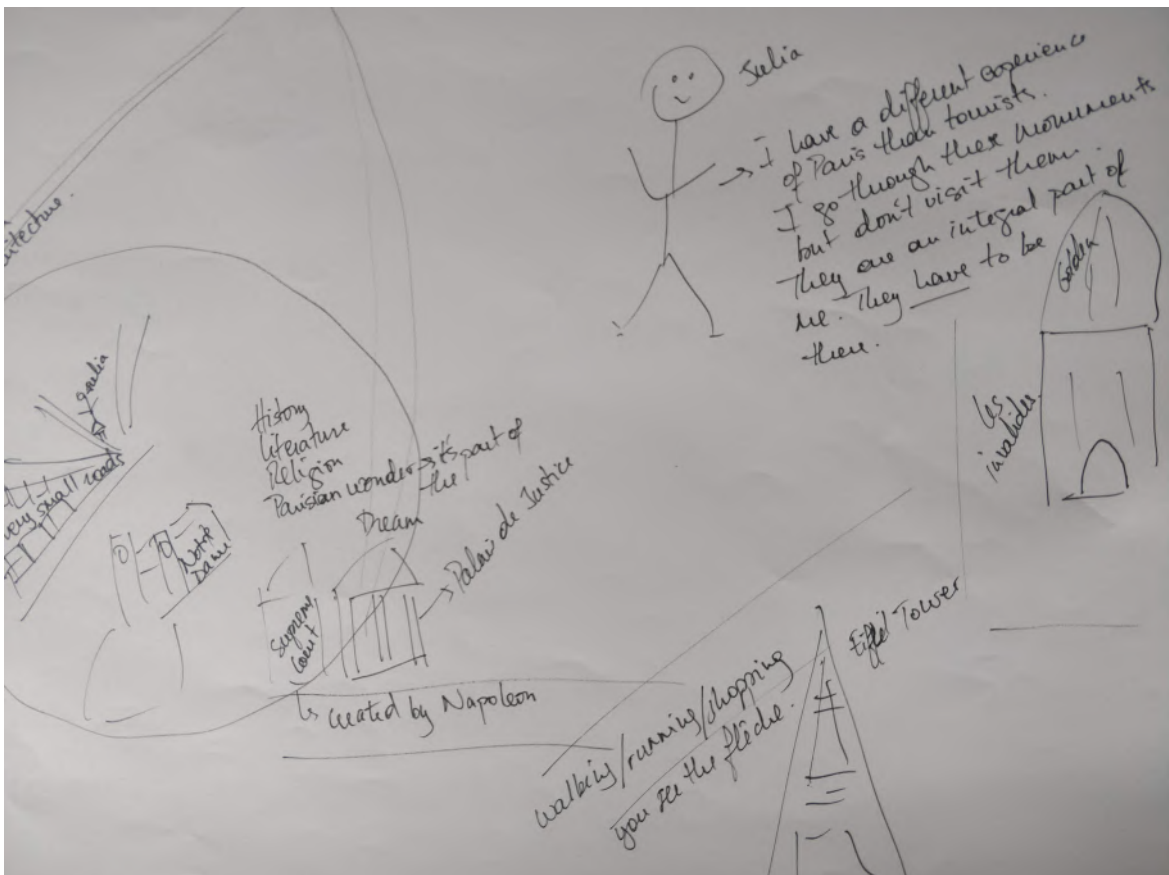 Julia
I have a different experience
of Paris than tourists.
I go through these monuments
but don't visit them.
They are an integral part of
me. They have to be
there.
Golden
Les
invalides
itecture.
Julia
very small roads
Notre
Dame
History
Literature
Religion
Parisian wonder → it's part of
the
Dream
Palais de Justice
Supreme
Court
created by Napoleon
walking/running/shopping
you see the flèche.
Eiffel Tower